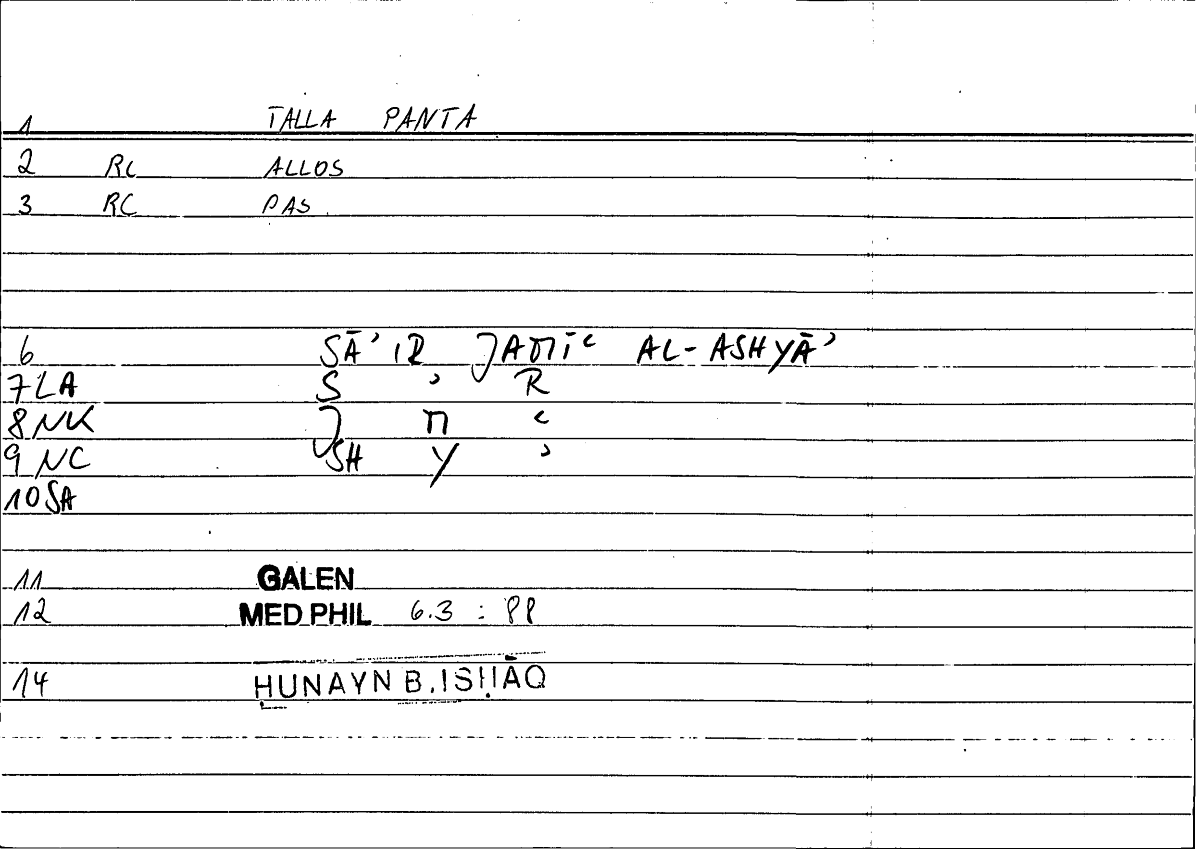 1 TALLA PANTA
2 RC ALLOS
3 RC PAS
6 SĀʾIR JAMĪʿ AL-ASHYĀʾ
7 LA S ʾ R
8 NK J M ʿ
9 NC SH Y ʾ
10 SA
11 GALEN
12 MED PHIL 6.3 : 88
14 ḤUNAYN B. ISḤĀQ